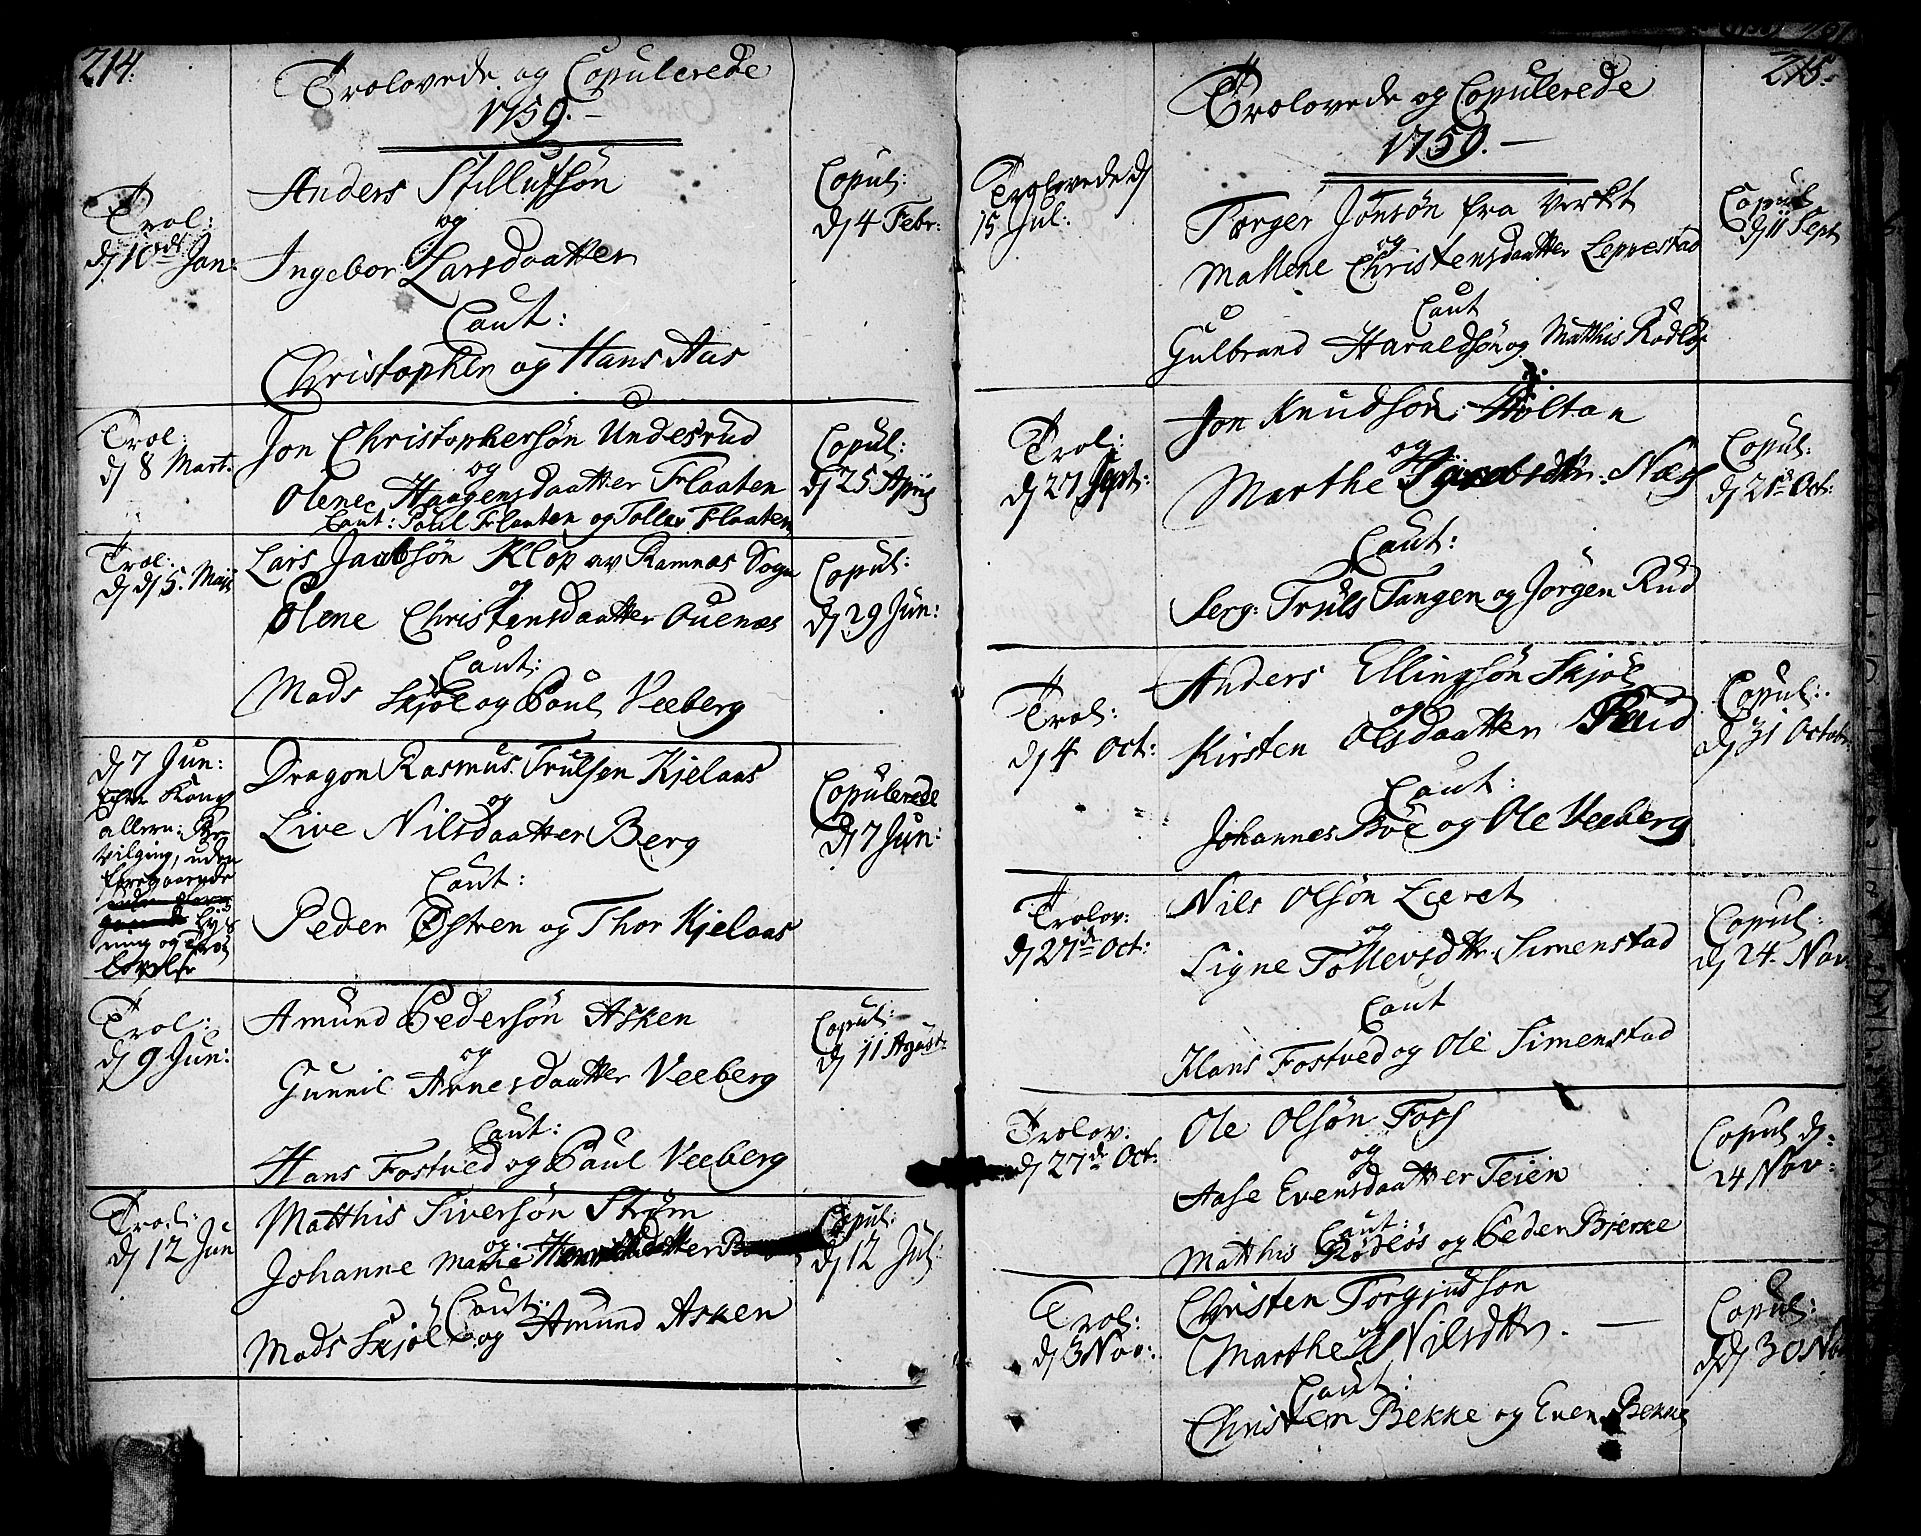 214.
Trolovede og Copulerede
1759.
Trol:
d 10de Jan:
Anders Stillufsøn
og
Ingebor Larsdaatter
Caut:
Christopher og Hans Aas
Copul:
d 4 Febr:
Trol:
d 8 Mart.
Jon Christophersøn Undesrud
og
Olene Haagensdaatter Flaaten
Caut: Poul Flaaten og Tollev Flaaten
Copul:
d 25 April
Trol:
d d 5. Maji
Lars Jacobsøn Klop av Ramnæs Sogn
og
Olene Christensdaatter Ouenæs
Caut:
Mads Skjøl og Poul Veeberg
Copul:
d 29 Jun:
d 7 Jun:
efter Kongl
allern: Be-
vilging, uden
foregaaende
Lys
ning og Trol
lovelse
Dragon Rasmus Trulsen Kjelaas
og
Live Nilsdaatter Berg
Caut:
Peder Østren og Thor Kjelaas
Copulerede
d 7 Jun:
Trol:
d 9 Jun:
Amund Pedersøn Asken
og
Gunnil Arnesdaatter Veeberg
Caut:
Hans Fostved og Paul Veeberg
Copul:
d 11 Agust:
Trol:
d 12 Jun
Matthis Siversøn Strøm
og
Johanne Marie
Caut:
Mads Skjøl og Amund Asken
Copul:
d 12 Jul:
215.
Trolovede og Copulerede
1759.
Trolovede d
15 Jul:
Torger Jonsøn fra Verkt
og
Mallene Christensdaatter Leppestad
Caut
Gulbrand Haraldsøn og Matthis Rødløs
Copul
d 11 Sept
Trol:
d 27 Sept:
Jon Knudsøn Holtan
og
Marthe Jacobsdtr: Næs
Caut:
Serg: Truls Tangen og Jørgen Rud
Copul:
d 21de Oct:
Trol:
d 4 Oct:
Anders Ellingsøn Skjøl
og
Kirsten Olsdaatter Ruud
Caut:
Johannes Bøe og Ole Veeberg
Copul:
d 31 Octobr:
Trolov:
d 27de Oct:
Nils Olsøn Lieret
og
Signe Tollevsdtr: Simenstad
Caut
Hans Fostved og Ole Simenstad
Copul:
d 24. Nov.
Trolov:
d 27de Oct:
Ole Olsøn Fors
og
Aase Evensdaatter Teien
Caut:
Matthis Rødløs og Peder Bjerke
Copul d:
24 Nov:
Trol:
d 3 Nov:
Christen Torgjusson
og
Marthe Nilsdtr.
Caut:
Christen Bekke og Even Bekke
Copul:
d d 30 Nov